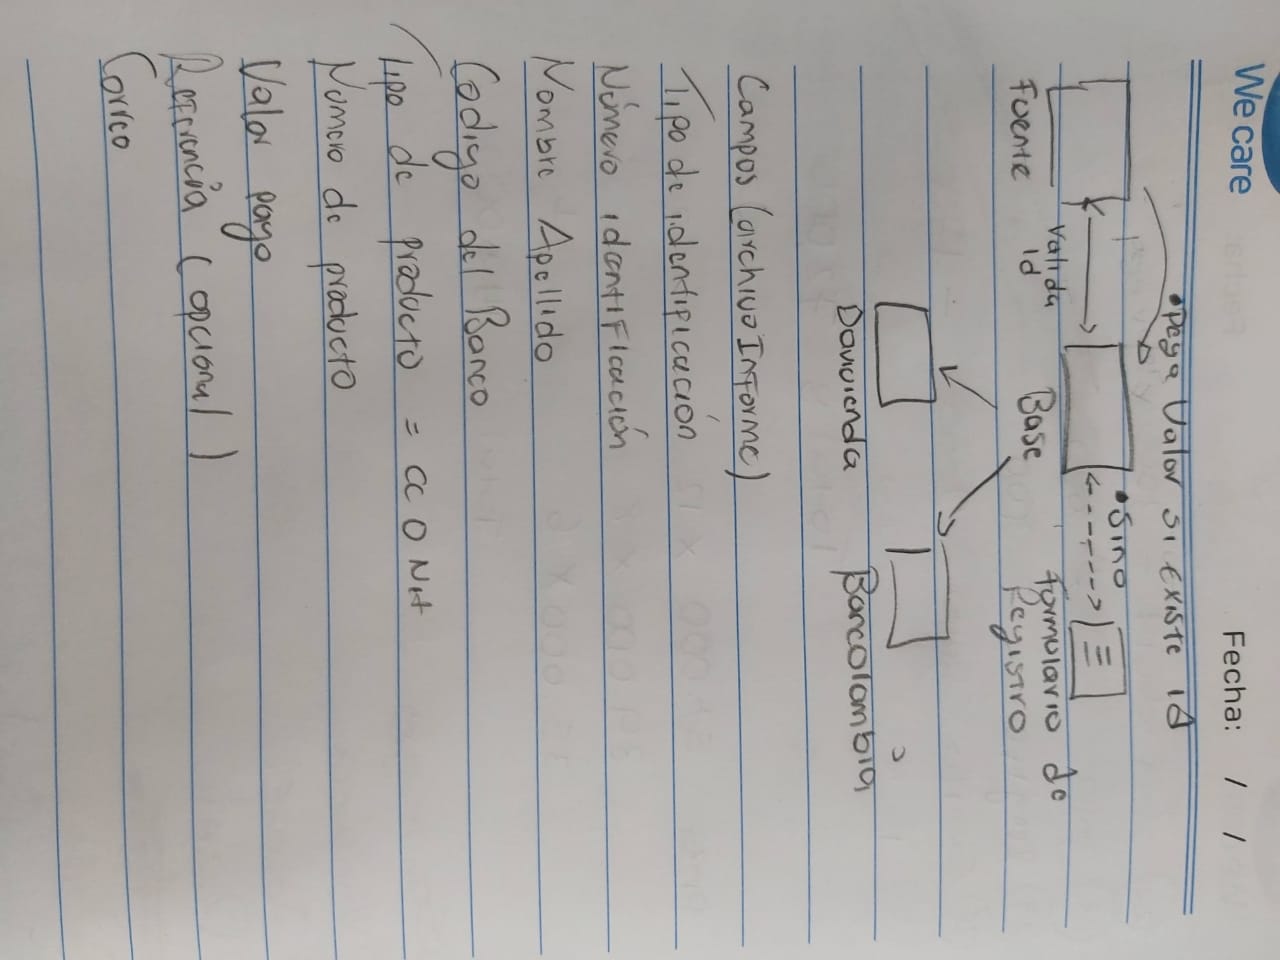 We care
Fecha: / /
•Pega Valor si existe id
•Sino
Valida
Id
Fuente
Base
Formulario de
Registro
Davivienda
Bancolombia
Campos (archivo Informe)
Tipo de identificación
Número identificación
Nombre Apellido
Codigo del Banco
tipo de producto = CC O Nit
Numero de producto
Valor pago
Referencia (opcional)
Correo